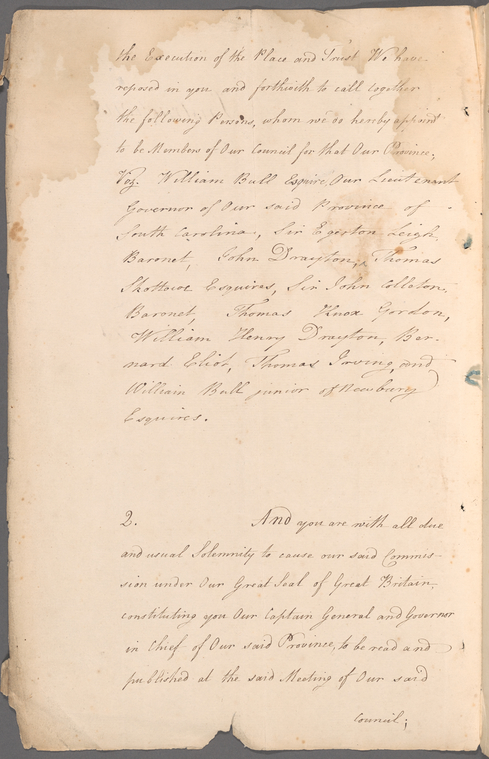 the Execution of the Place and Trust We have
reposed in you and forthwith to call together
the following Persons, whom we do hereby appoint
to be Members of Our Council for that Our Province,
Viz. William Bull Esquire, Our Lieutenant
Governor of Our said Province of
South Carolina, Sir Egerton Leigh
Baronet, John Drayton, Thomas
Skottowe Esquires, Sir John Colleton
Baronet, Thomas Knox Gordon,
William Henry Drayton, Ber-
nard Eliot, Thomas Irving, and
William Bull junior of Newbury
Esquires.
2. And you are with all due
and usual Solemnity to cause our said Commis-
sion under Our Great Seal of Great Britain
constituting you Our Captain General and Governor
in Chief of Our said Province, to be read and
published at the said Meeting of Our said
Council;